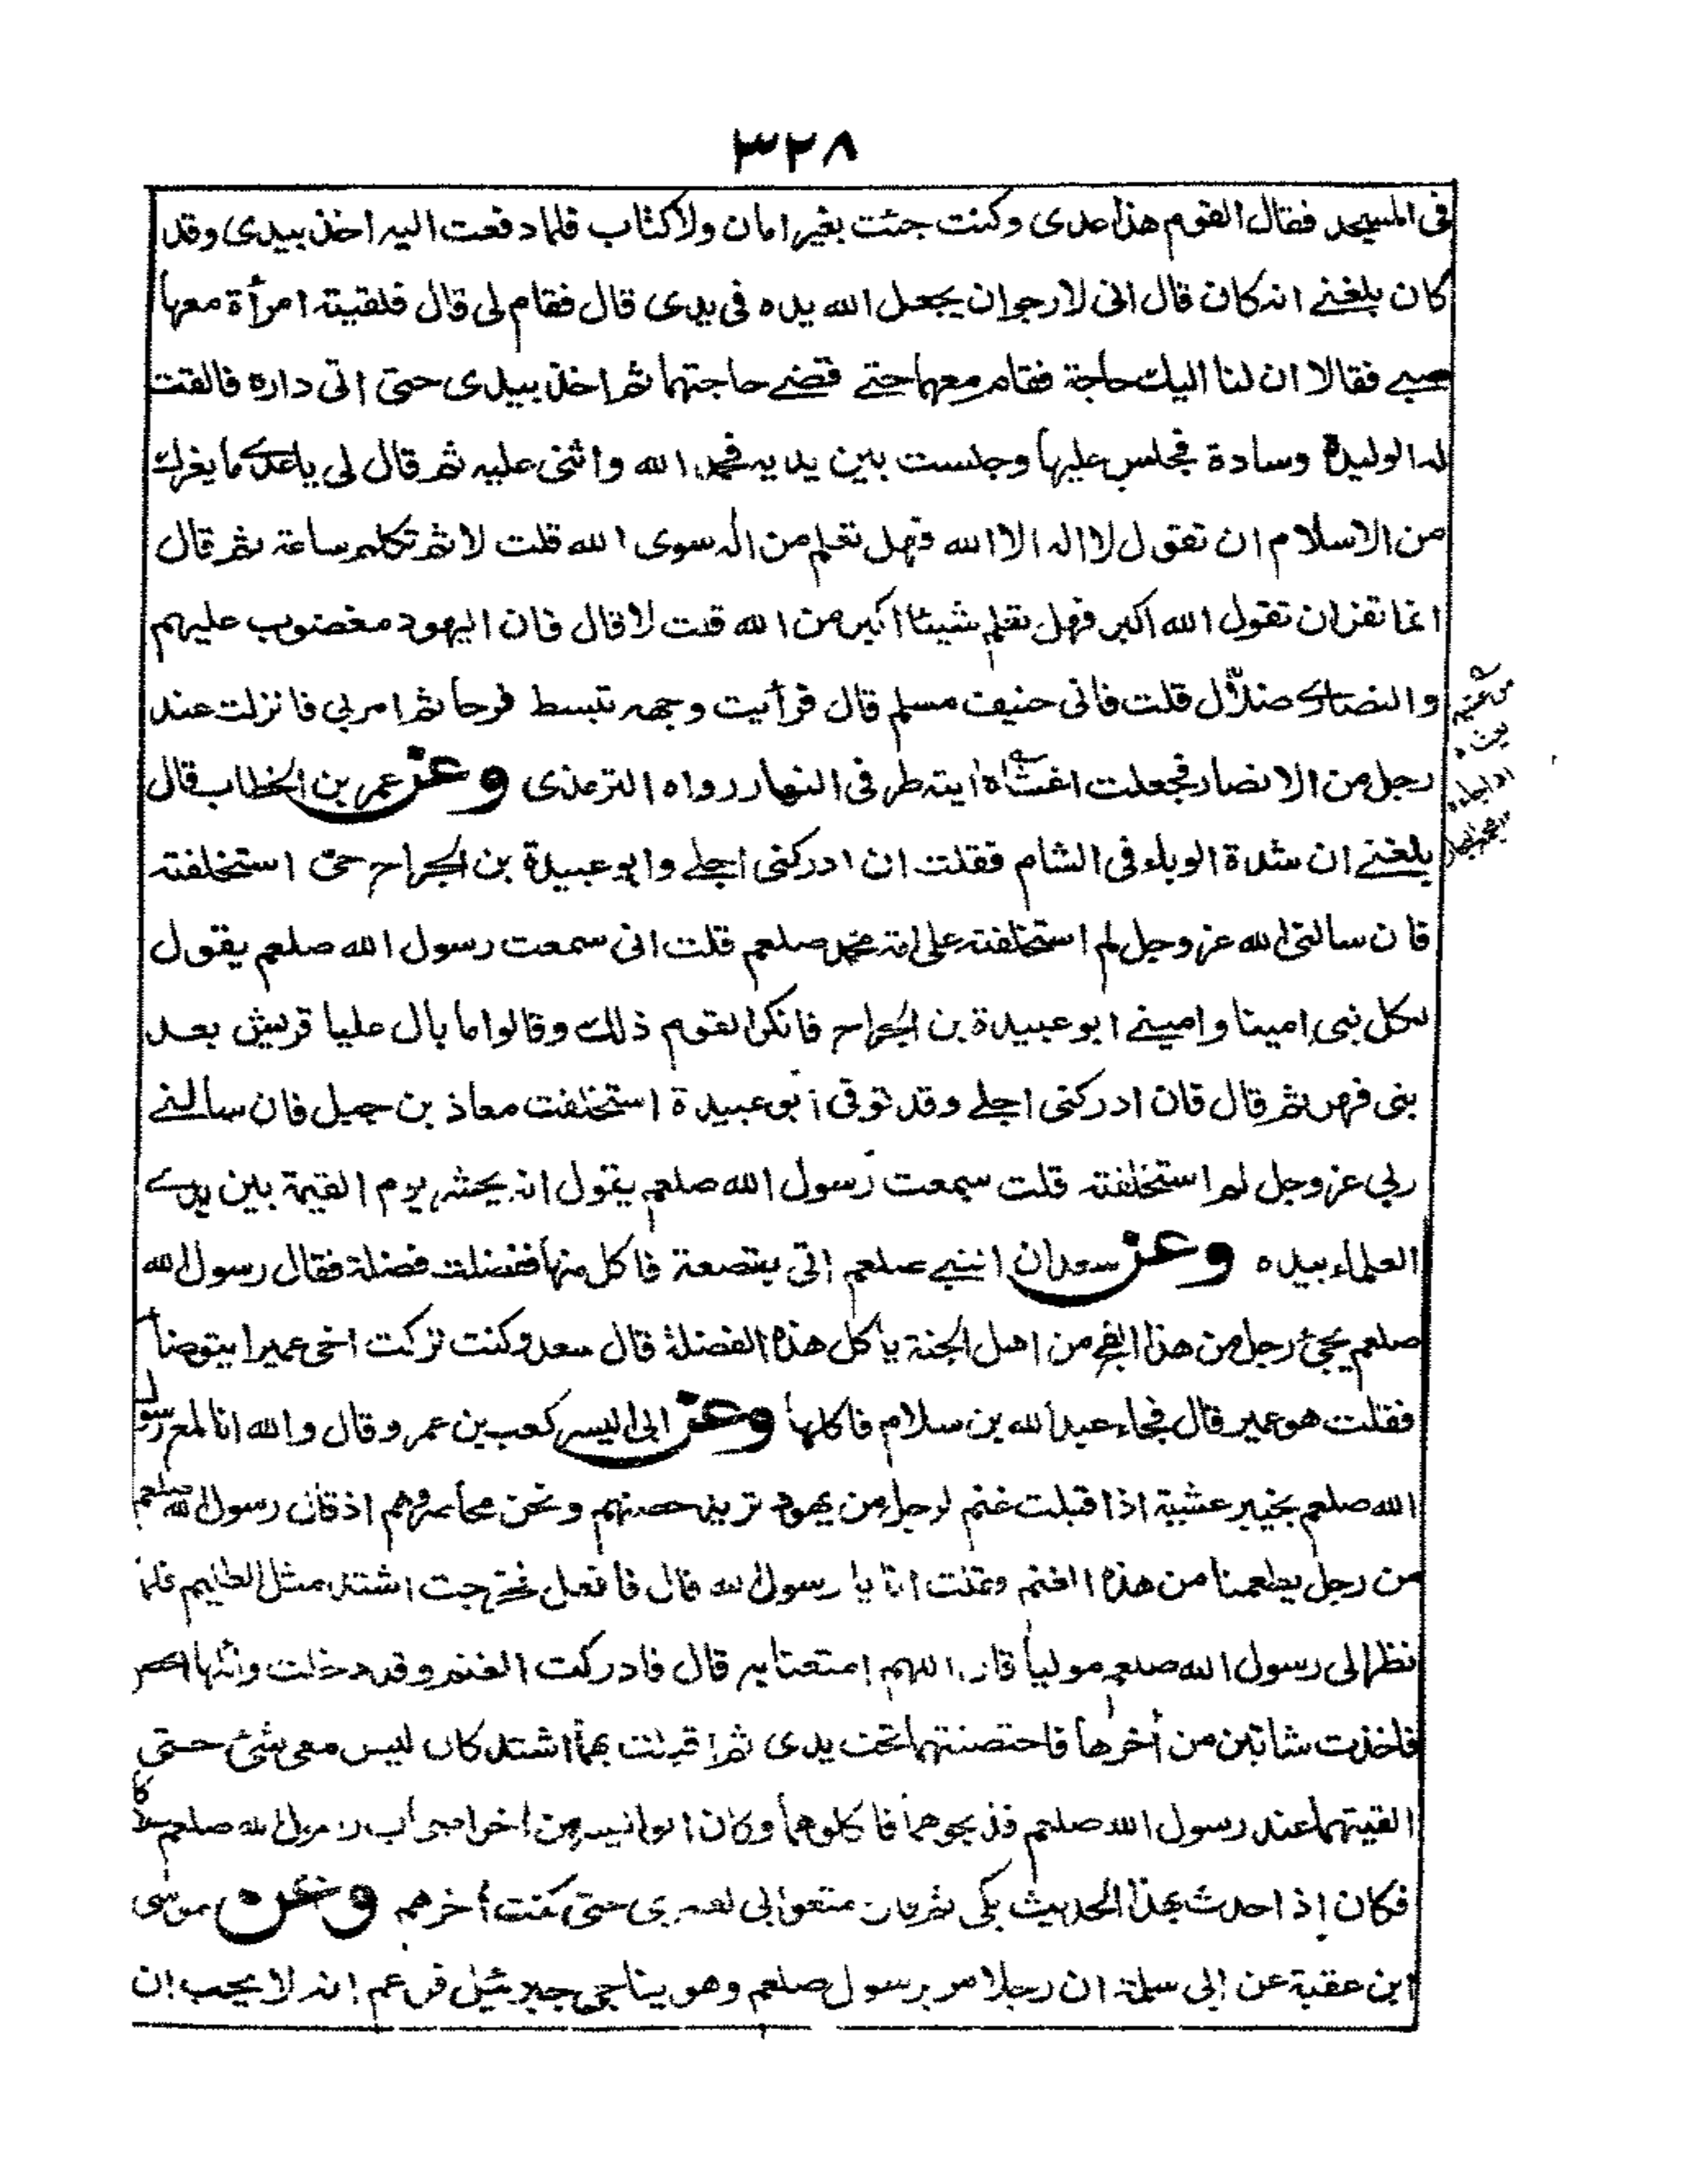 ٣٢٨
فى المسجد فقال القوم هذا عدى وكنت جئت بغير امان ولا كتاب فلما دفعت اليه اخذ بيدى وقد
كان بلغنے انه كان قال انى لارجو ان يجعل الله يده فى يدى قال فقام لى قال فلقيته امرأة معها
صبے فقالا ان لنا اليك حاجة فقام معهما حتے قضے حاجتهما ثم اخذ بيدى حتى اتى داره فالقت
له الوليدة وسادة فجلس عليها وجلست بين يديه فحمد الله واثنى عليه ثم قال لى يا عدے ما يغرك
من الاسلام ان تقول لا اله الا الله فهل تعلم من اله سوى الله قلت لا ثم تكلم ساعة ثم قال
انما تفر ان تقول الله اكبر فهل تعلم شيئا اكبر من الله قلت لا قال فان اليهود مغضوب عليهم
والنصارے ضلّال قلت فانى حنيف مسلم قال فرأيت وجهه تبسط فرحا ثم امر بى فانزلت عند
رجل من الانصار فجعلت اغشاه ايته طرفى النهار رواه الترمذى وعن عمر بن الخطاب قال
بلغنے ان شدة الوباء فى الشام فقلت ان ادركنى اجلے وابو عبيدة بن الجراح حى استخلفته
فان سالنى الله عز وجل لم استخلفته على امة محمد صلعم قلت انى سمعت رسول الله صلعم يقول
لكل نبى امينا وامينے ابو عبيدة بن الجراح فانكر القوم ذلك وقالوا ما بال عليا قريش بعد
بنى فهر ثم قال فان ادركنى اجلے وقد توفى أبو عبيدة استخلفت معاذ بن جبل فان سالنے
ربى عز وجل لم استخلفته قلت سمعت رسول الله صلعم يقول انه يحشر يوم القيمة بين يدے
العلماء بيده وعن سعد ان النبے صلعم اتى بقصعة فاكل منها ففضلت فضلة فقال رسول الله
صلعم يجئ رجل من هذا الفج من اهل الجنة يأكل هذه الفضلة قال سعد وكنت تركت اخى عميرا يتوضأ
فقلت هو عمير قال فجاء عبد الله بن سلام فاكلها وعن ابى اليسر كعب بن عمرو قال والله انا لمع رسول
الله صلعم بخيبر عشية اذ اقبلت غنم لرجل من يهود تريد حصنهم ونحن محاصروهم اذ قال رسول الله صلعم
من رجل يطعمنا من هذه الغنم فقلت انا يا رسول الله قال فافعل فخرجت اشتد مثل الظليم فلما
نظر الى رسول الله صلعم موليا قال اللهم امتعنا به قال فادركت الغنم وقد دخلت
فاخذت شاتين من أخرها فاحتضنتهما تحت يدى ثم اقبلت بهما اشتد كان ليس معى شئ حتى
القيتهما عند رسول الله صلعم فذبحوهما فاكلوهما وكان ابو اليسر من اخر اصحاب رسول الله صلعم هلاكا
فكان إذ احدث بهذا الحديث بكى ثم قال متعوا بى لعمرى حتى كنت أخرهم وعن موسى
ابن عقبة عن ابى سلمة ان رجلا مر برسول صلعم وهو يناجى جبرئيل فزعم انه لا يحب ان